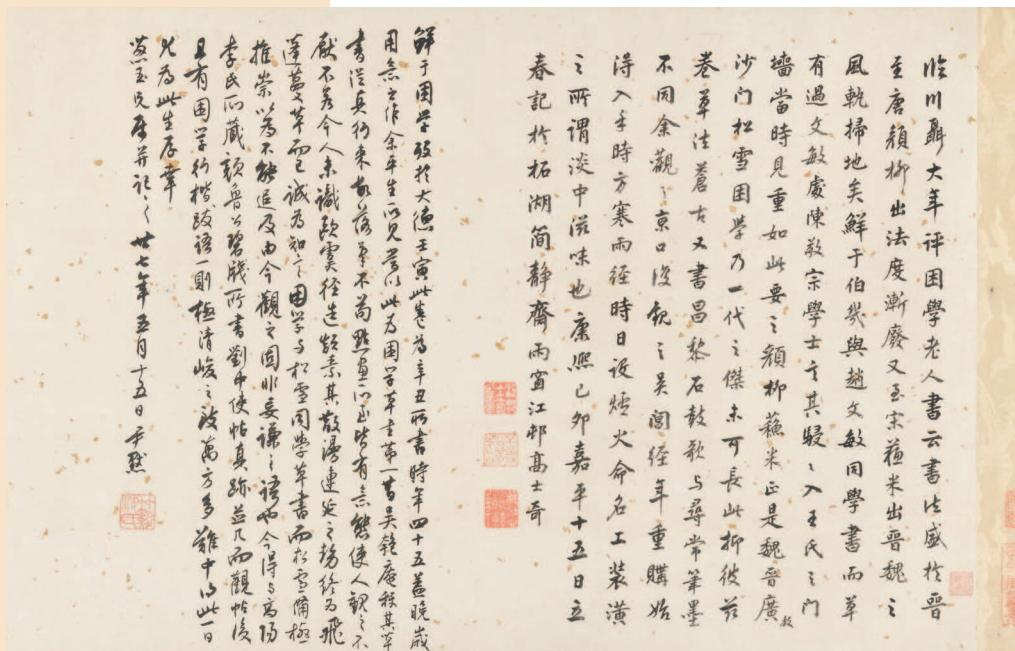 臨川聶大年評困學老人書云書法盛於晉
至唐顏柳出法度漸廢又至宋蘓米出晉魏之
風軌掃地矣鮮于伯幾與趙文敏同學書而草
有過文敏處陳敬宗學士言其駸〻入王氏之門
墻當時見重如此要之顏柳蘓米正是魏晉廣
教
沙門松雪困學乃一代之傑未可長此抑彼茲
卷草法蒼古又書昌黎石鼓歌与尋常筆墨
不同余觀之京口復觀之吳閶經年重購始
得入手時方寒雨經時日設爐火命名工裝潢
之所謂淡中滋味也康熙己卯嘉平十五日立
春記於柘湖簡靜齋雨窗江邨高士奇
鮮于困學歿於大德壬寅此卷為辛丑所書時年四十五蓋晚歲
用意之作余平生所見當以此為困學草書第一昔吳匏庵稱其草
書從真行來故落筆不苟點畫所至皆有意態使人觀之不
厭不若今人未識歐虞徑造顛素其散漫連延之勢終為飛
蓬蔓草而已誠為知言困學与松雪同學草書而松雪獨極
推崇以為不能追及由今觀之固非妄謙之語也今得与高陽
李氏所藏顏魯公碧牋所書劉中使帖真跡並几而觀帖後
且有困學行楷跋語一則極清峻之致萬方多難中得此一日
眼為此生厚幸
葱玉兄屬並記之廿七年五月十五日尹默